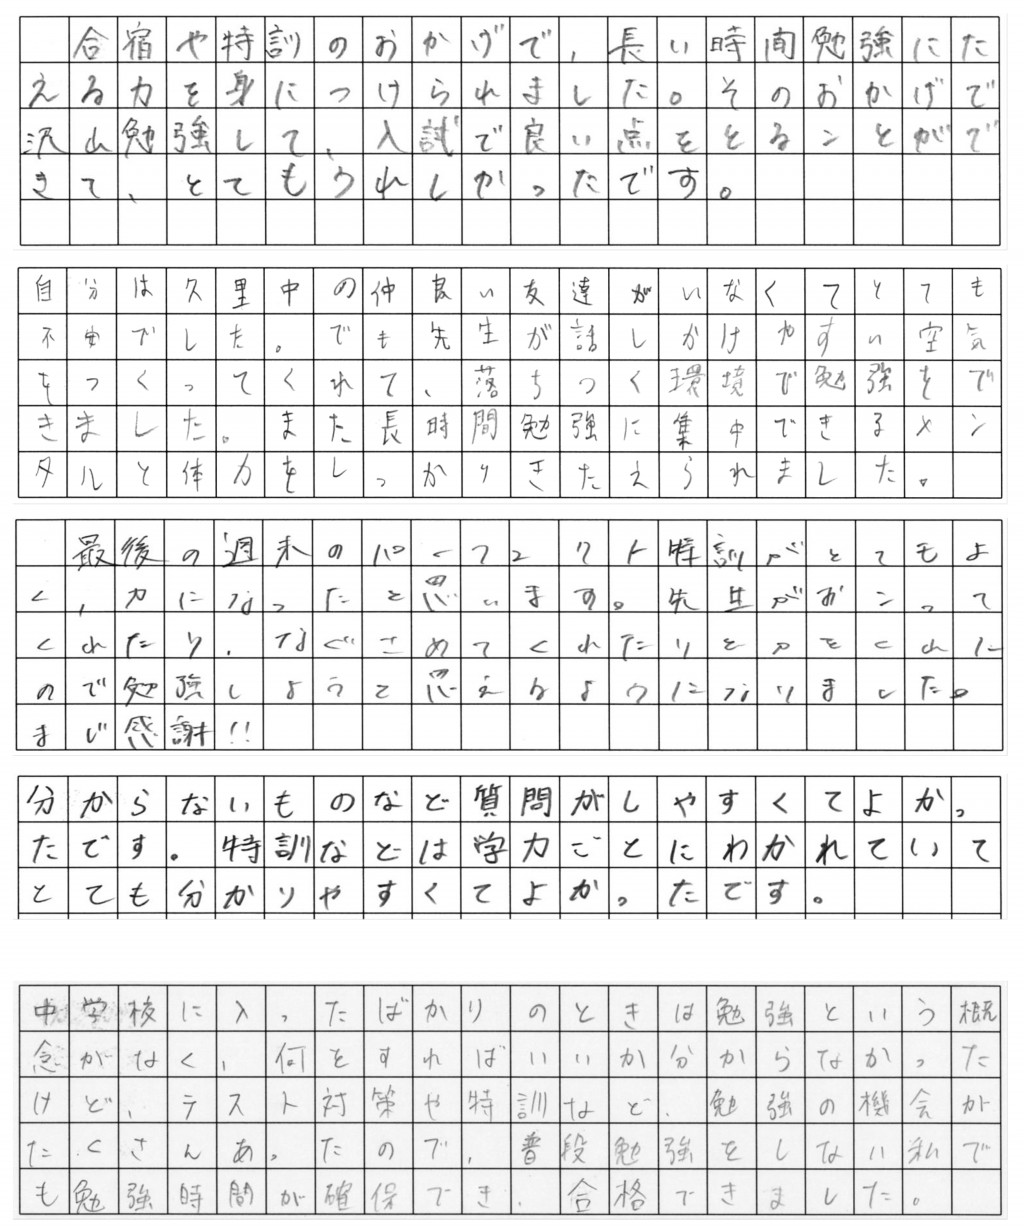 合宿や特訓のおかげで、長い時間勉強にた
える力を身につけられました。そのおかげで
沢山勉強して、入試で良い点をとることがで
きて、とてもうれしかったです。
自分は久里中の仲良い友達がいなくてとても
不安でした。でも先生が話しかけやすい空気
をつくってくれて、落ちつく環境で勉強をで
きました。また長時間勉強に集中できるメン
タルと体力をしっかりきたえられました。
最後の週末のパーフェクト特訓がとてもよ
く、力になったと思います。先生がおこって
くれたり、なぐさめてくれたりとかをくれた
ので勉強しようと思えるようになりました。
まじ感謝!!
分からないものなど質問がしやすくてよかっ
たです。特訓などは学力ごとにわかれていて
とても分かりやすくてよかったです。
中学校に入ったばかりのときは勉強という概
念がなく、何をすればいいか分からなかった
けど、テスト対策や特訓など、勉強の機会が
たくさんあったので、普段勉強をしない私で
も勉強時間が確保でき、合格できました。